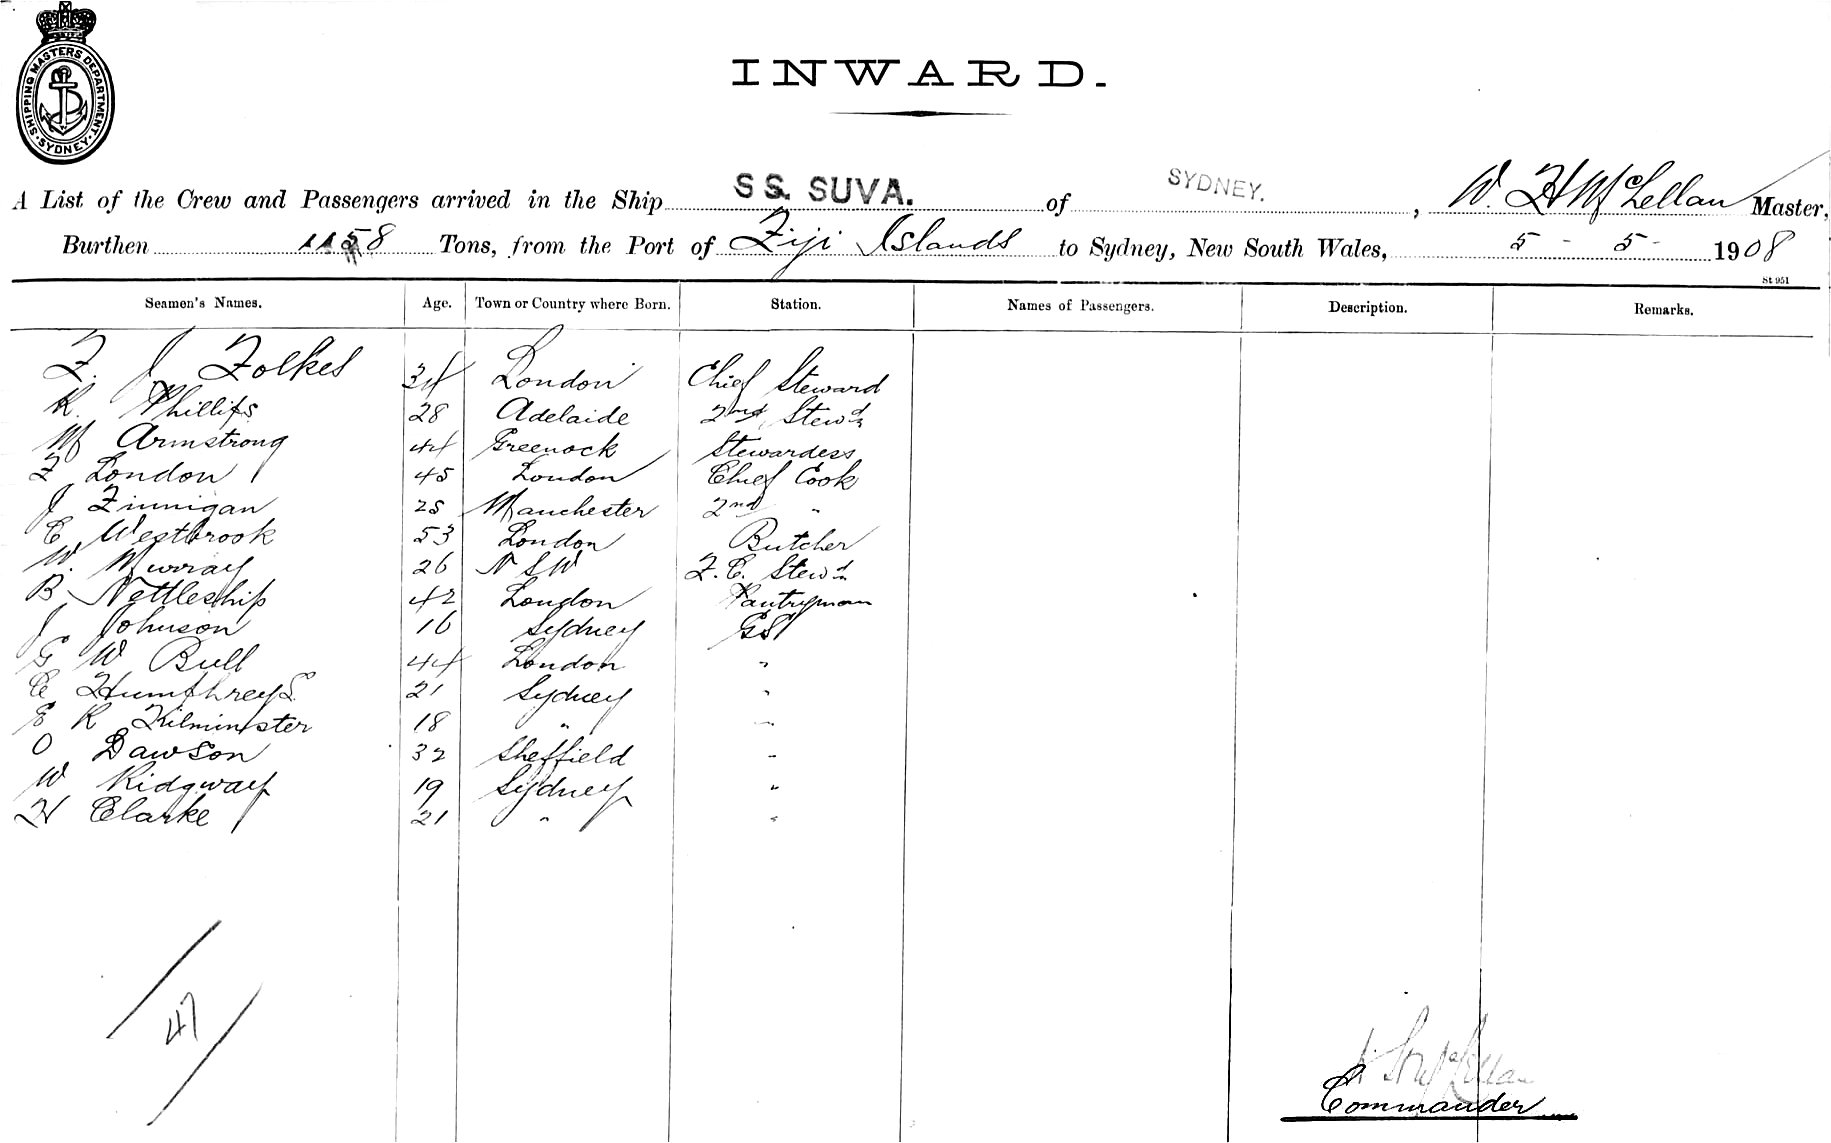 SHIPPING MASTERS DEPARTMENT. SYDNEY
INWARD.
A List of the Crew and Passengers arrived in the Ship SS. SUVA. of SYDNEY. , W. H McLellan Master,
Burthen 1158 Tons, from the Port of Fiji Islands to Sydney, New South Wales, 5 - 5 - 1908
St 951
Seamen's Names. Age. Town or Country where Born. Station. Names of Passengers. Description. Remarks.
F. J Folkes 34 London Chief Steward
R. Phillips 28 Adelaide 2nd Stewd
M Armstrong 44 Greenock Stewardess
F London 45 London Chief Cook
J Finnigan 25 Manchester 2nd "
C Westbrook 53 London Butcher
W. Murray 26 N S W F. C. Stewd
B Nettleship 42 London Pantryman
J Johnson 16 Sydney GS
G W Bull 44 London "
C Humphreys 21 Sydney "
E R Kilminster 18 " "
O Dawson 32 Sheffield "
W Ridgway 19 Sydney "
H Clarke 21 " "
47
McLellan
Commander